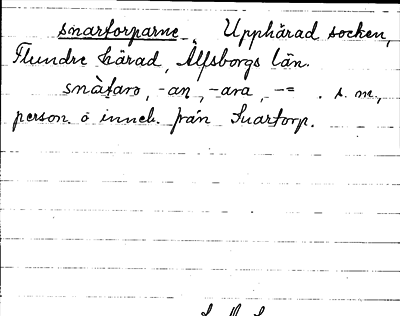 snartorparne. Upphärad socken,
Flundre härad, Älfsborgs län.
snàtaro, -an, -ara, -= . s. m.,
person o inneb. från Snartorp.